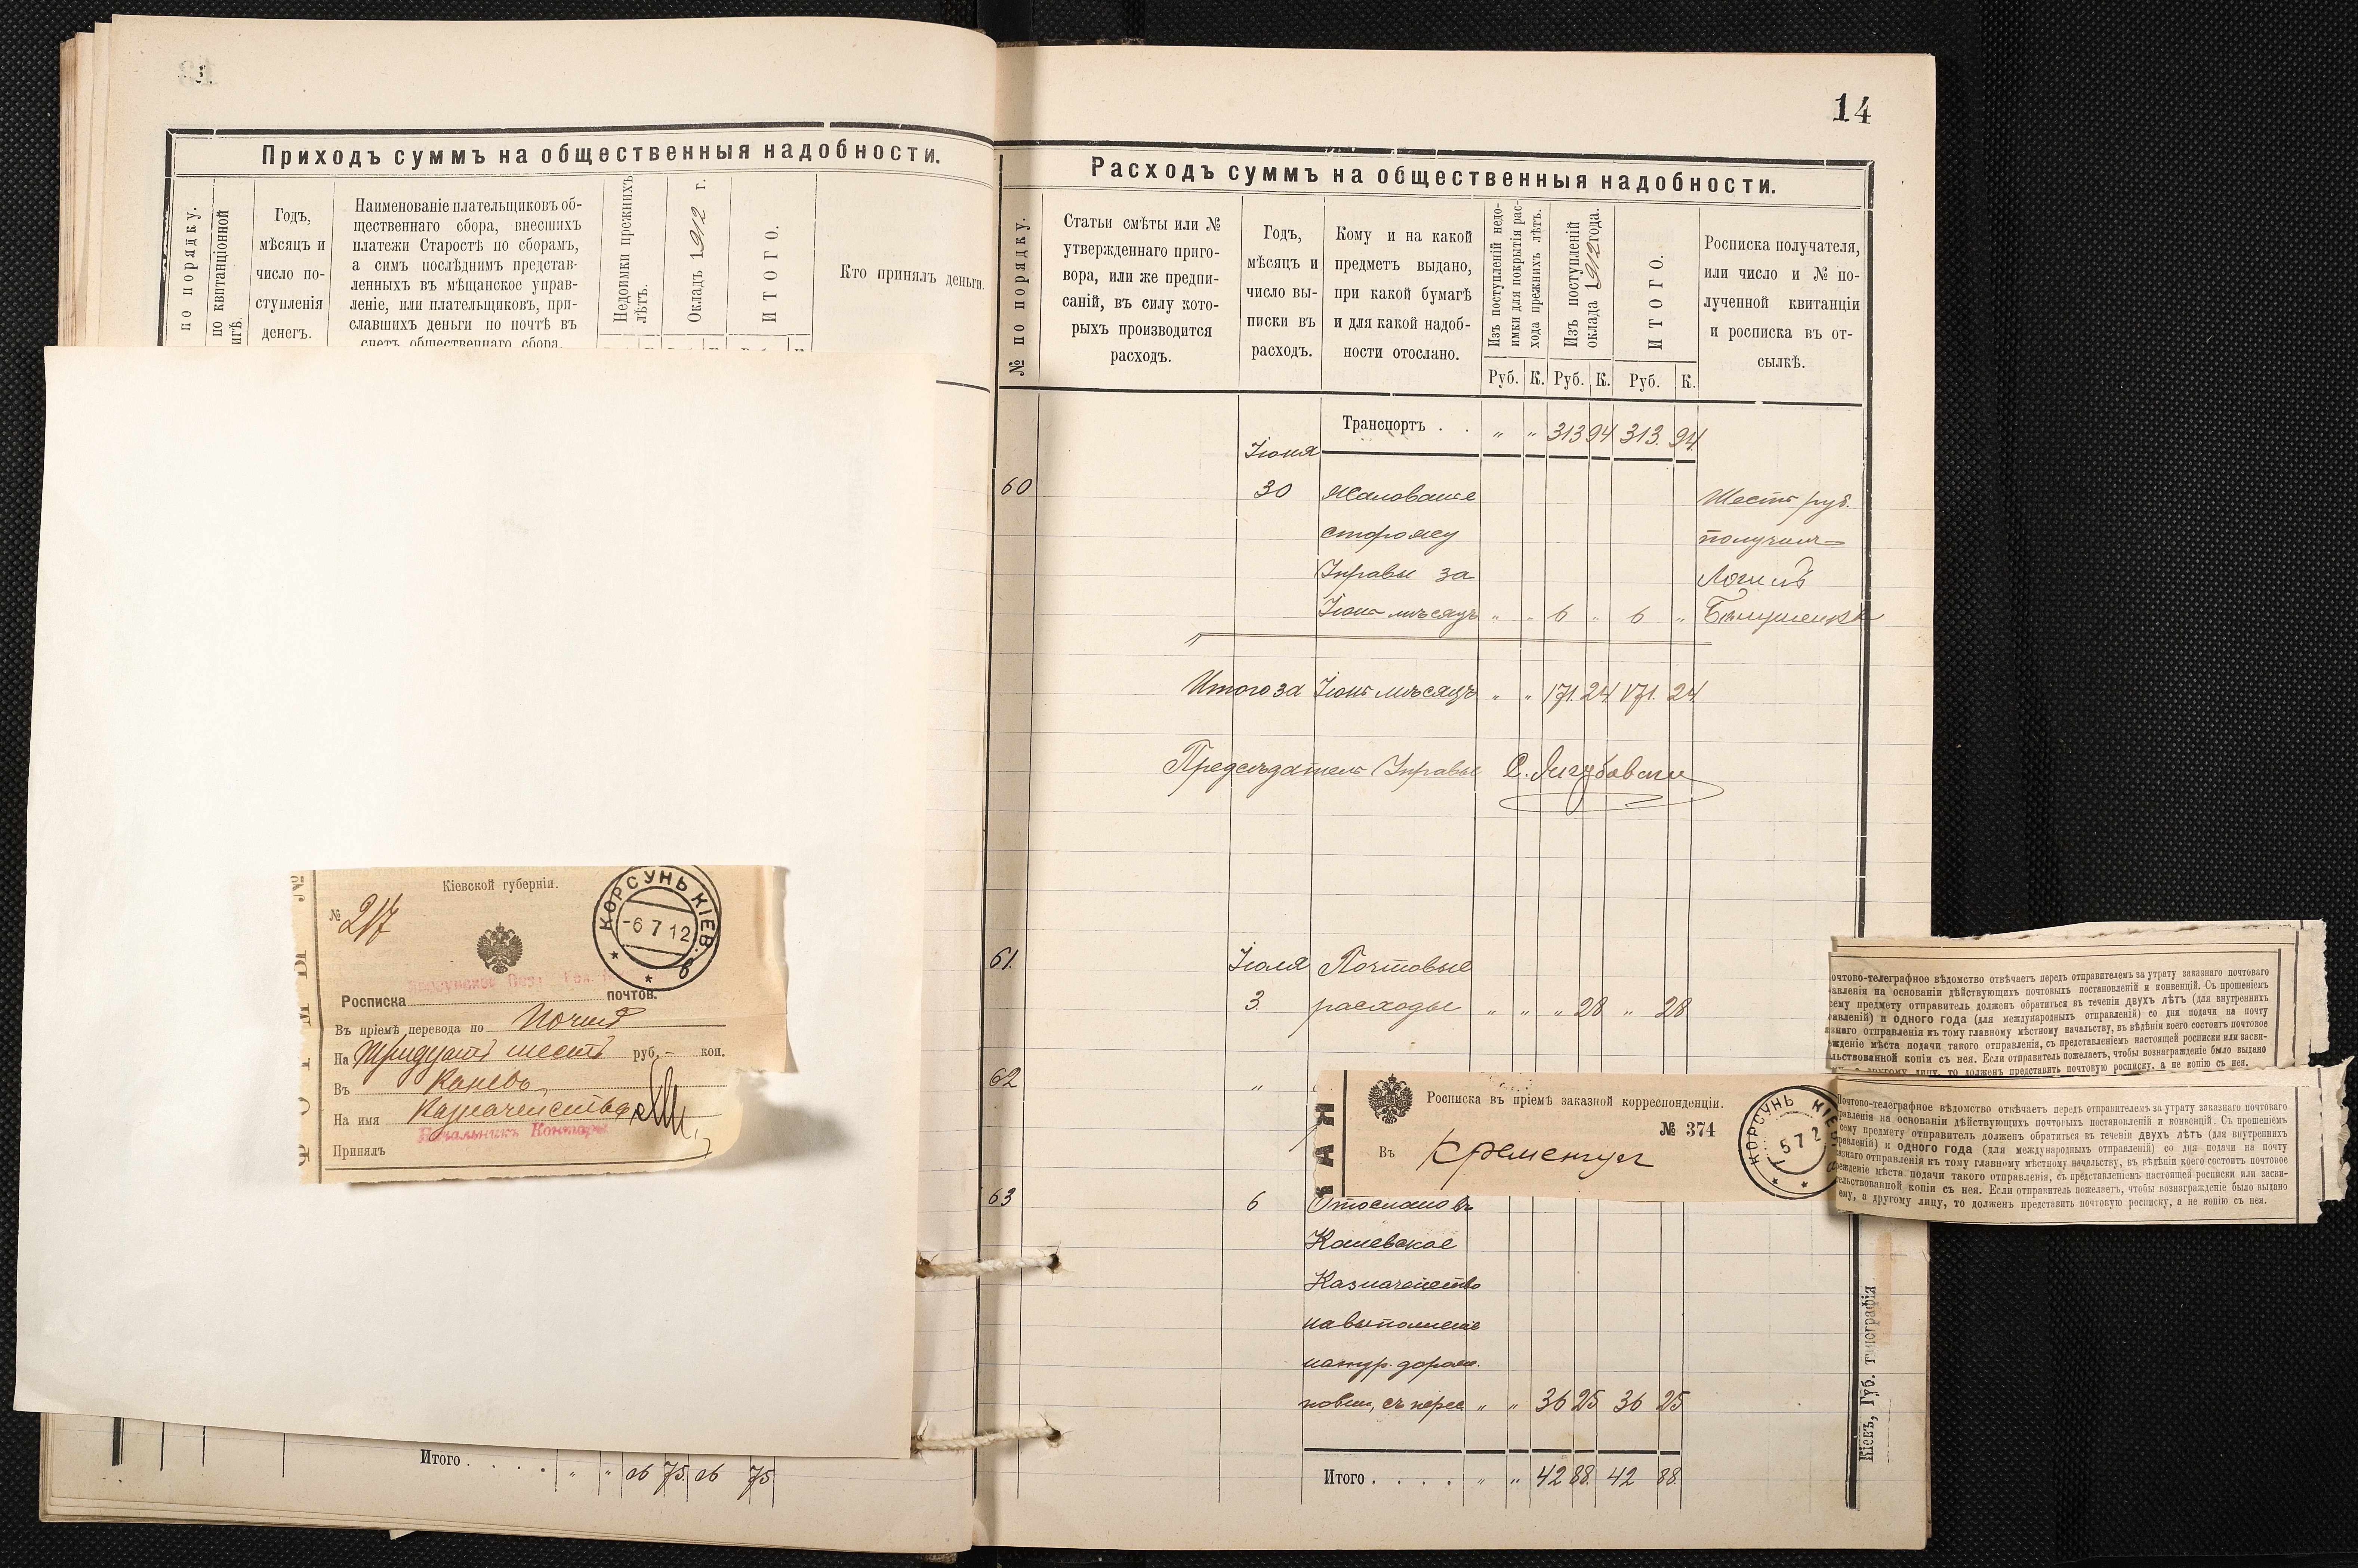 Приходъ суммъ на общественныя надобности.
по порядку.
по квитанціонной
игѣ.
Годъ,
мѣсяцъ и
число по-
ступленія
денегъ.
Наименованіе плательщиковъ об-
щественнаго сбора, внесшихъ
платежи Старостѣ по сборамъ,
а симъ послѣднимъ представ-
ленныхъ въ мѣщанское управ-
леніе, или плательщиковъ, при-
славшихъ деньги по почтѣ въ
счетъ общественнаго сбора.
Недоимки прежнихъ
лѣтъ.
Окладъ 1912 г.
ИТОГО.
Кто принялъ деньги.
Кіевской губерніи.
№ 217
КОРСУНЬ КІЕВ.
-6 7 12
в
Росписка почтов.
Въ пріемѣ перевода по Почтѣ
На Тридцать шесть руб. – коп.
Въ Каневъ
На имя Казначейства
Начальникъ Конторы
Принялъ
Итого . . . . " " 26 75 26 75
14
Расходъ суммъ на общественныя надобности.
№ по порядку.
Статьи смѣты или №
утвержденнаго приго-
вора, или же предпи-
саній, въ силу кото-
рыхъ производится
расходъ.
Годъ,
мѣсяцъ и
число вы-
писки въ
расходъ.
Кому и на какой
предметъ выдано,
при какой бумагѣ
и для какой надоб-
ности отослано.
Изъ поступленій недо-
имки для покрытія рас-
хода прежнихъ лѣтъ.
Изъ поступленій
оклада 1912 года.
ИТОГО.
Росписка получателя,
или число и № по-
лученной квитанціи
и росписка въ от-
сылкѣ.
Руб. К. Руб. К. Руб. К.
Транспортъ . . " " 313 94 313. 94
Іюня
60 30 Жалованье Шесть руб.
сторожу получилъ
Управы за
Іюнь мѣсяцъ " " 6 " 6 "
Итого за Іюнь мѣсяцъ " " 171. 24 171. 24
Предсѣдатель Управы
61. Іюля Почтовые
3. расходы " " " 28 " 28
62 "
Росписка въ пріемѣ заказной корреспонденціи.
№ 374
Въ Кременчуг
КОРСУНЬ КІЕВ
5 7 2
63 6 Отослано въ
Каневское
Казначейство
на выполненіе
натур. дорож.
повин, съ перес " " 36 25 36 25
Итого . . . . " " 42 88. 42 88.
очтово-телеграфное вѣдомство отвѣчаетъ передъ отправителемъ за утрату заказнаго почтоваго
авленія на основаніи дѣйствующихъ почтовыхъ постановленій и конвенцій. Съ прошеніемъ
сему предмету отправитель долженъ обратиться въ теченіи двухъ лѣтъ (для внутреннихъ
равленій) и одного года (для международныхъ отправленій) со дня подачи на почту
знаго отправленія къ тому главному мѣстному начальству, въ вѣдѣніи коего состоитъ почтовое
жденіе мѣста подачи такого отправленія, съ представленіемъ настоящей росписки или засви-
льствованной копіи съ нея. Если отправитель пожелаетъ, чтобы вознагражденіе было выдано
другому лицу, то долженъ представить почтовую росписку, а не копію съ нея.
Почтово-телеграфное вѣдомство отвѣчаетъ передъ отправителемъ за утрату заказнаго почтоваго
равленія на основаніи дѣйствующихъ почтовыхъ постановленій и конвенцій. Съ прошеніемъ
сему предмету отправитель долженъ обратиться въ теченіи двухъ лѣтъ (для внутреннихъ
равленій) и одного года (для международныхъ отправленій) со дня подачи на почту
азнаго отправленія къ тому главному мѣстному начальству, въ вѣдѣніи коего состоитъ почтовое
еждение мѣста подачи такого отправленія, съ представленіемъ настоящей росписки или засви-
ельствованной копіи съ нея. Если отправитель пожелаетъ, чтобы вознагражденіе было выдано
ему, а другому лицу, то долженъ представить почтовую росписку, а не копію съ нея.
Кіевъ, Губ. типографія